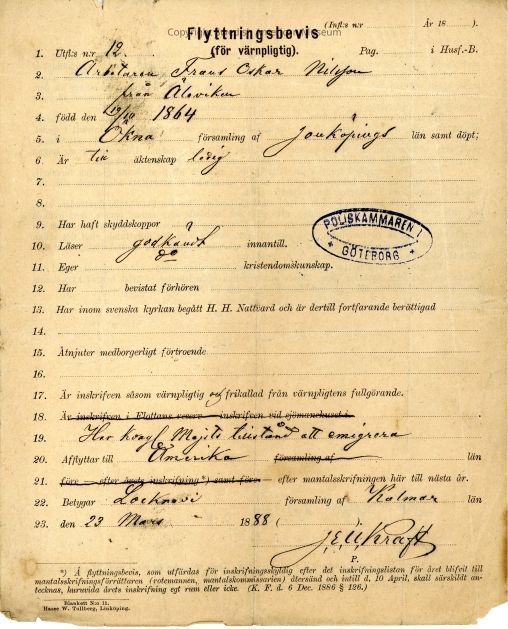 (Infl:s n:r År 18 ).
Flyttningsbevis
(för värnpligtig).
1. Utfl:s n:r 12. Pag. i Husf.-B.
2. Arbetaren Frans Oskar Nilsson
3. från Åleviken
4. född den 19/10 1864
5. i Ökna församling af Jönköpings län samt döpt;
6. Är till äktenskap ledig
7.
8.
9. Har haft skyddskoppor
10. Läser godkändt innantill.
11. Eger do kristendomskunskap.
12. Har bevistat förhören
13. Har inom svenska kyrkan begått H. H. Nattvard och är dertill fortfarande berättigad
14.
15. Åtnjuter medborgerligt förtroende
16.
17. Är inskrifven såsom värnpligtig frikallad från värnpligtens fullgörande.
18. Är inskrifven i Flottans reserv inskrifven vid sjömanshuset i
19. Har kongl Majts tillstånd att emigrera
20. Afflyttar till Amerika församling af län
21. före efter årets inskrifning*) samt före efter mantalsskrifningen här till nästa år.
22. Betygar Locknevi församling af Kalmar län
23. den 23 Mars 1888 ( ).
Kraft
P.
*) Å flyttningsbevis, som utfärdas för inskrifningsskyldig efter det inskrifningslistan för året blifvit till
mantalsskrifningsförrättaren (rotemannen, mantalskommissarien) återsänd och intill d. 10 April, skall särskildt an-
tecknas, huruvida årets inskrifning egt rum eller icke. (K. F. d. 6 Dec. 1886 § 126.)
Blankett N:o 11.
Hasse W. Tullberg, Linköping.
POLISKAMMAREN I
GÖTEBORG